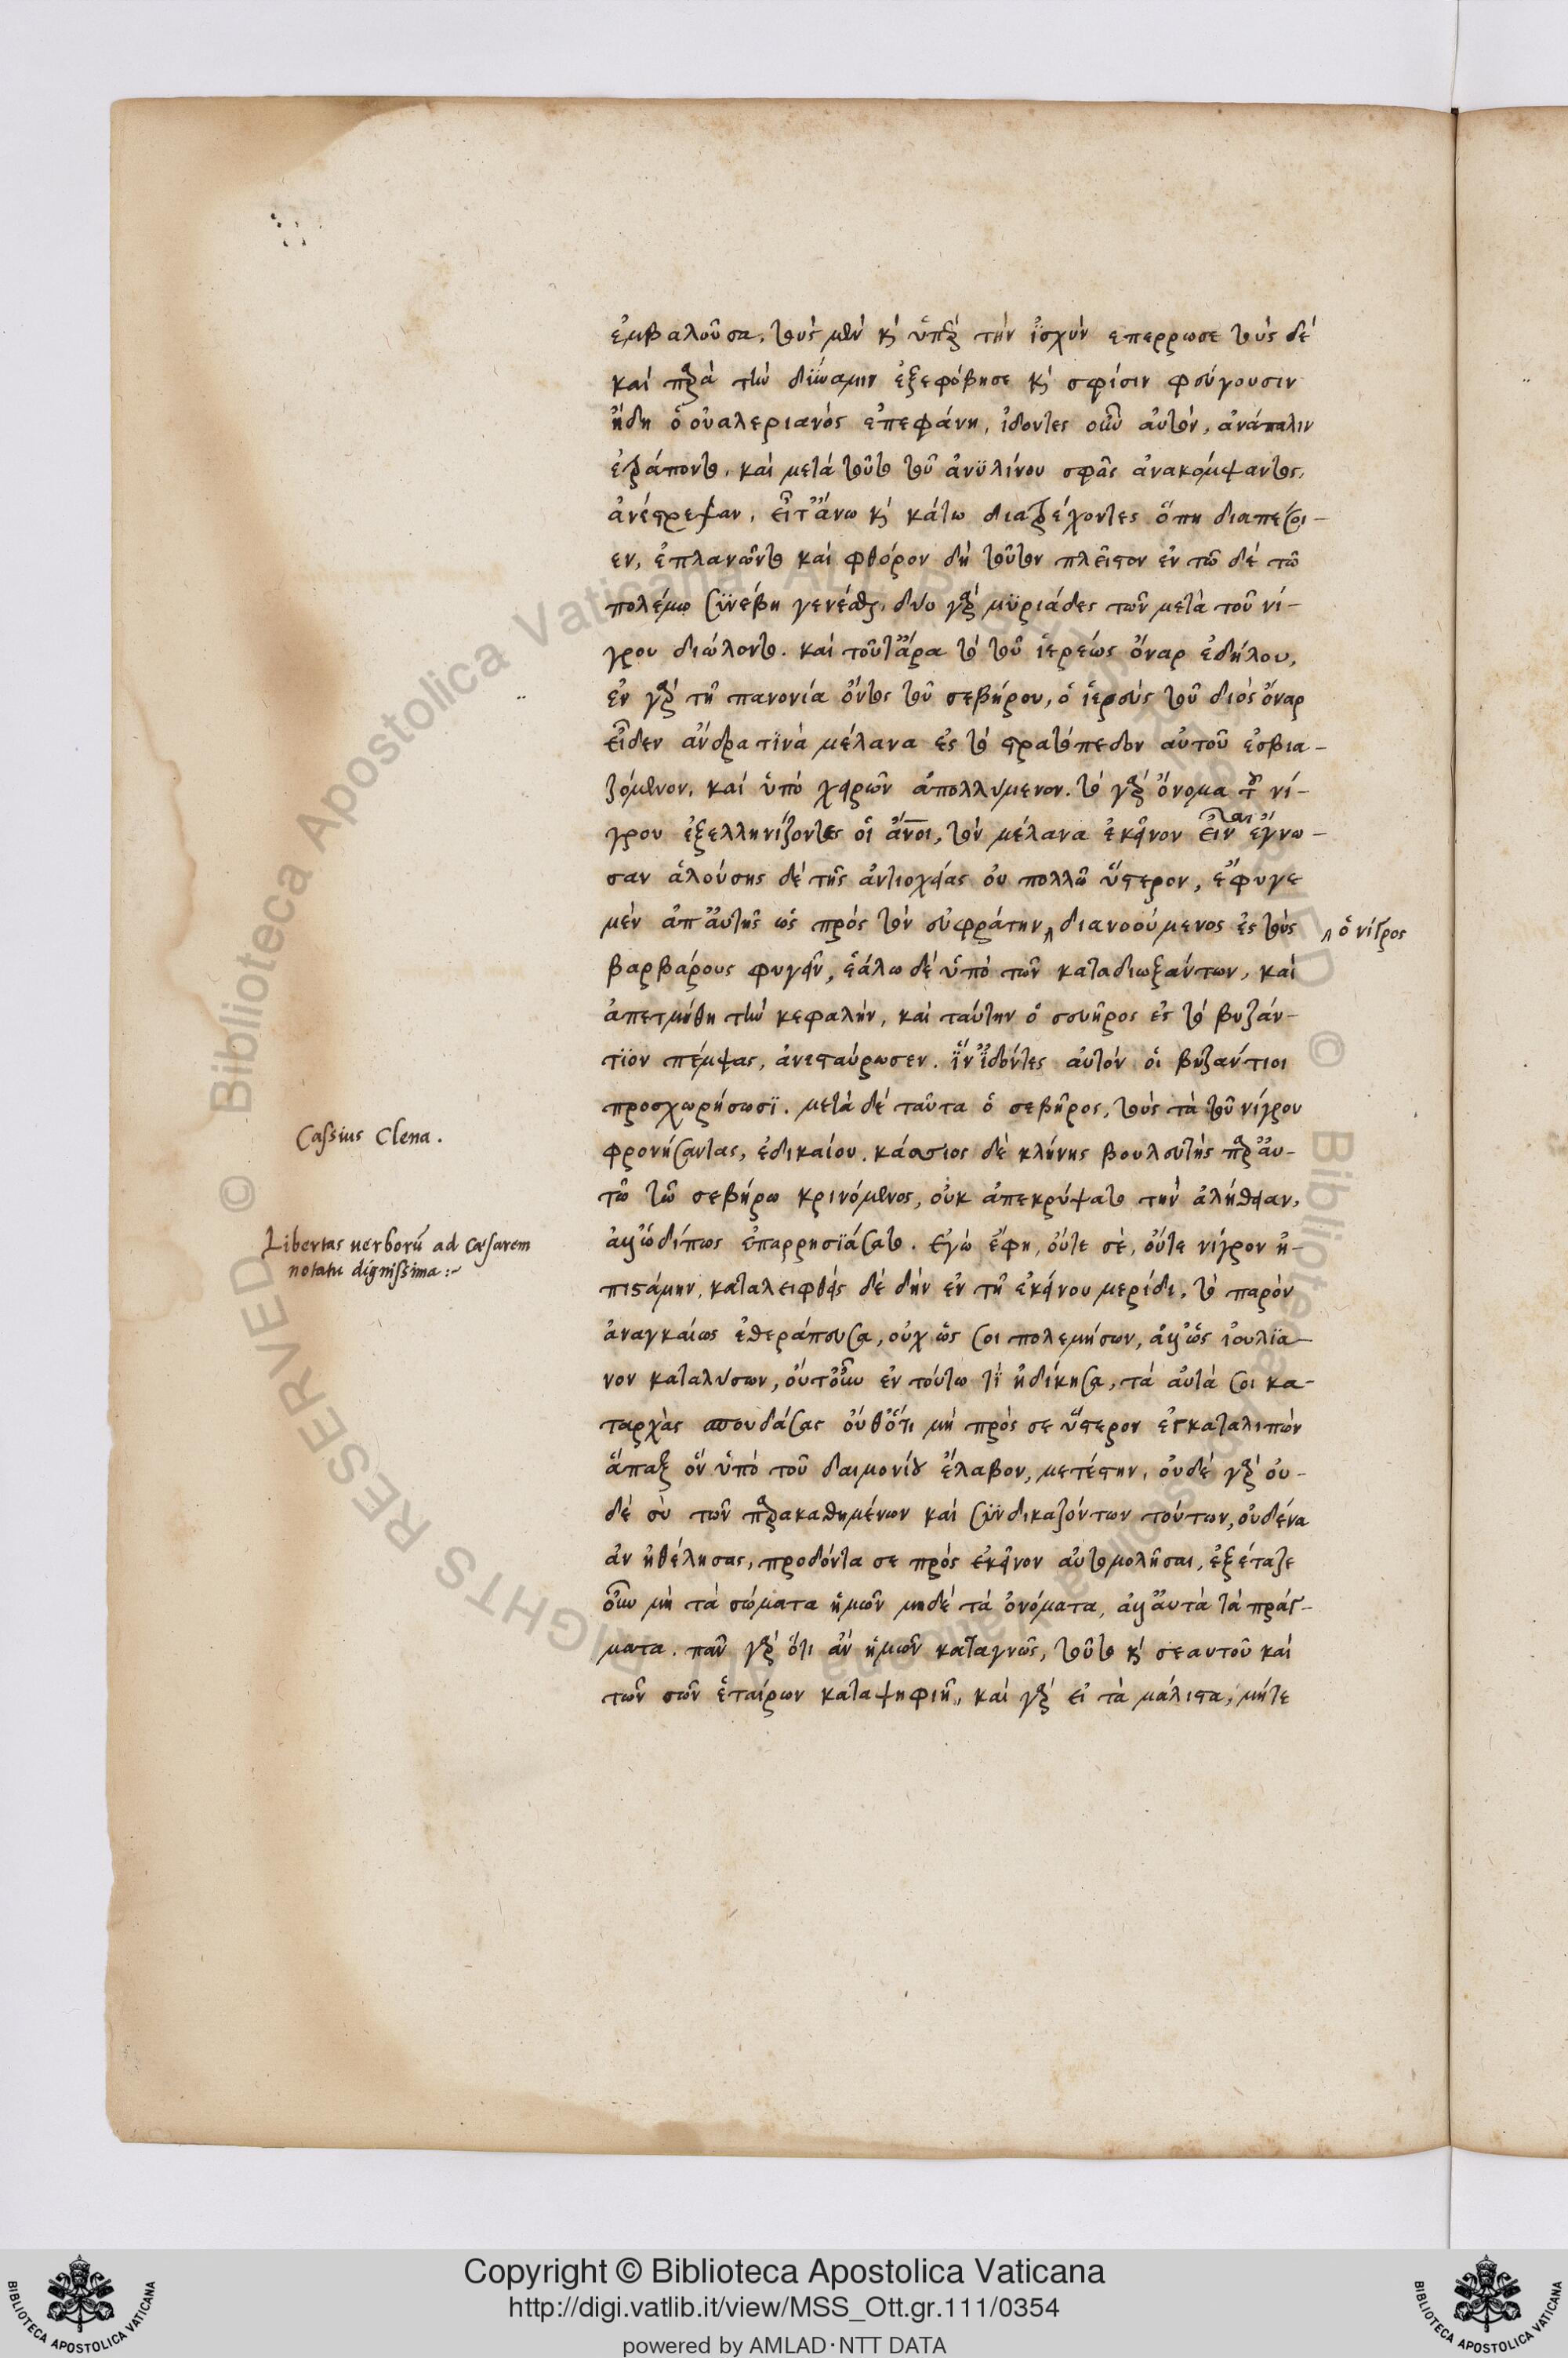 ἐμβαλοῦσα, τοὺς μὲν κὶ ὑπὲρ τὴν ἰσχὺν επερρωσε τοὺς δὲ
καὶ παρὰ τὴν δύναμιν ἐξεφόβησε κὶ σφίσιν φεύγουσιν
ἤδη ὁ οὐαλεριανὸς ἐπεφάνη, ἰδοντες οὖν αὐτὸν, ἀνάπαλιν
ἐτράποντο, καὶ μετὰ τοῦτο τοῦ ἀνϋλίνου σφᾶς ἀνακόψαντος,
ἀνέστρεψαν, εἶτ ἄνω κὶ κάτω διατρέχοντες ὅπη διαπέσοι-
εν, ἐπλανῶντο καὶ φθόρον δὴ τοῦτον πλεῖστον ἐν τῶ δὲ τῶ
πολέμω συνέβη γενέσθαι, δύο γὰρ μϋριάδες τῶν μετὰ τοῦ νί-
γρου διώλοντο. καὶ τοῦτ ἄρα τὸ τοῦ ἱερέως ὄναρ ἐδήλου,
ἐν γὰρ τῆ πανονία ὄντος τοῦ σεβήρου, ὁ ἱερεὺς τοῦ διὸς ὄναρ
εἶδεν ἄνδρα τϊνὰ μέλανα ἐς τὸ στρατόπεδον αὐτοῦ ἐσβια-
ζόμενον, καὶ ὑπὸ χειρῶν ἀπολλύμενον. τὸ γὰρ ὄνομα τοῦ νί-
γρου ἐξελληνίζοντες οἱ ἄνοι, τὸν μέλανα ἐκεῖνον εἶναι ἔγνω-
σαν ἁλούσης δὲ τῆς ἀντιοχείας οὐ πολλῶ ὕστερον, ἔφυγε
μὲν ἀπ αὐτῆς ὡς πρὸς τὸν εὐφράτην, διανοούμενος ἐς τοὺς ὁ νίγρος
βαρβάρους φυγεῖν, ἑάλω δὲ ὑπὸ τῶν καταδιωξάντων, καὶ
ἀπετμήθη τὴν κεφαλὴν, καὶ ταύτην ὁ σευῆρος ἐς τὸ βυζάν-
τϊον πέμψας, ἀνεσταύρωσεν. ἵν ἰδόντες αὐτὸν οἱ βυζάντιοι
προσχωρήσωσϊ. μετὰ δὲ ταῦτα ὁ σεβῆρος, τοὺς τὰ τοῦ νίγρου
Caſsius Clena.
φρονήσαντας, ἐδικαίου. κάσσιος δὲ κλήνης βουλευτὴς παρ αυ-
τῶ τῶ σεβήρω κρινόμενος, οὐκ ἀπεκρύψατο τὴν ἀλήθειαν,
Libertas uerborũ ad cæſarem
notatu digniſsima:~
ἀλλ ὡδίπως ἐπαρρησϊάσατο. ἐγὼ ἔφη, οὔτε σὲ, οὔτε νίγρον ἠ-
πιστάμην, καταλειφθεὶς δὲ δὴν ἐν τῆ ἐκείνου μερίδι, τὸ παρὸν
ἀναγκαίως ἐθεράπευσα, οὐχ ὥς σοι πολεμήσων, ἀλλ ὡς ἰουλϊα-
νον καταλυσων, οὔτ οὖν ἐν τούτω τϊ ἠδίκησα, τὰ αὐτά σοι κα-
ταρχὰς σπουδάσας οὔθ ὅτι μὴ πρός σε ὕστερον ἐγκαταλιπὼν
ἅπαξ ὃν ὑπὸ τοῦ δαιμονίου ἔλαβον, μετέστην, οὐδὲ γὰρ οὐ-
δὲ σὺ τῶν παρακαθημένων καὶ συνδικαζόντων τούτων, οὐδένα
ἂν ἠθέλησας, προδόντα σε πρὸς ἐκεῖνον αὐτομολῆσαι, ἐξέταζε
οὖν μὴ τὰ σώματα ἡμῶν μηδὲ τὰ ὀνόματα, ἀλλ αὐτὰ τὰ πράγ-
ματα. πᾶν γὰρ ὅτι ἂν ἡμῶν καταγνῶς, τοῦτο κὶ σεαυτοῦ καὶ
τῶν σῶν ἑταίρων καταψηφιῆ, καὶ γὰρ εἰ τὰ μάλιστα, μήτε
Copyright © Biblioteca Apostolica Vaticana
http://digi.vatlib.it/view/MSS_Ott.gr.111/0354
powered by AMLAD·NTT DATA